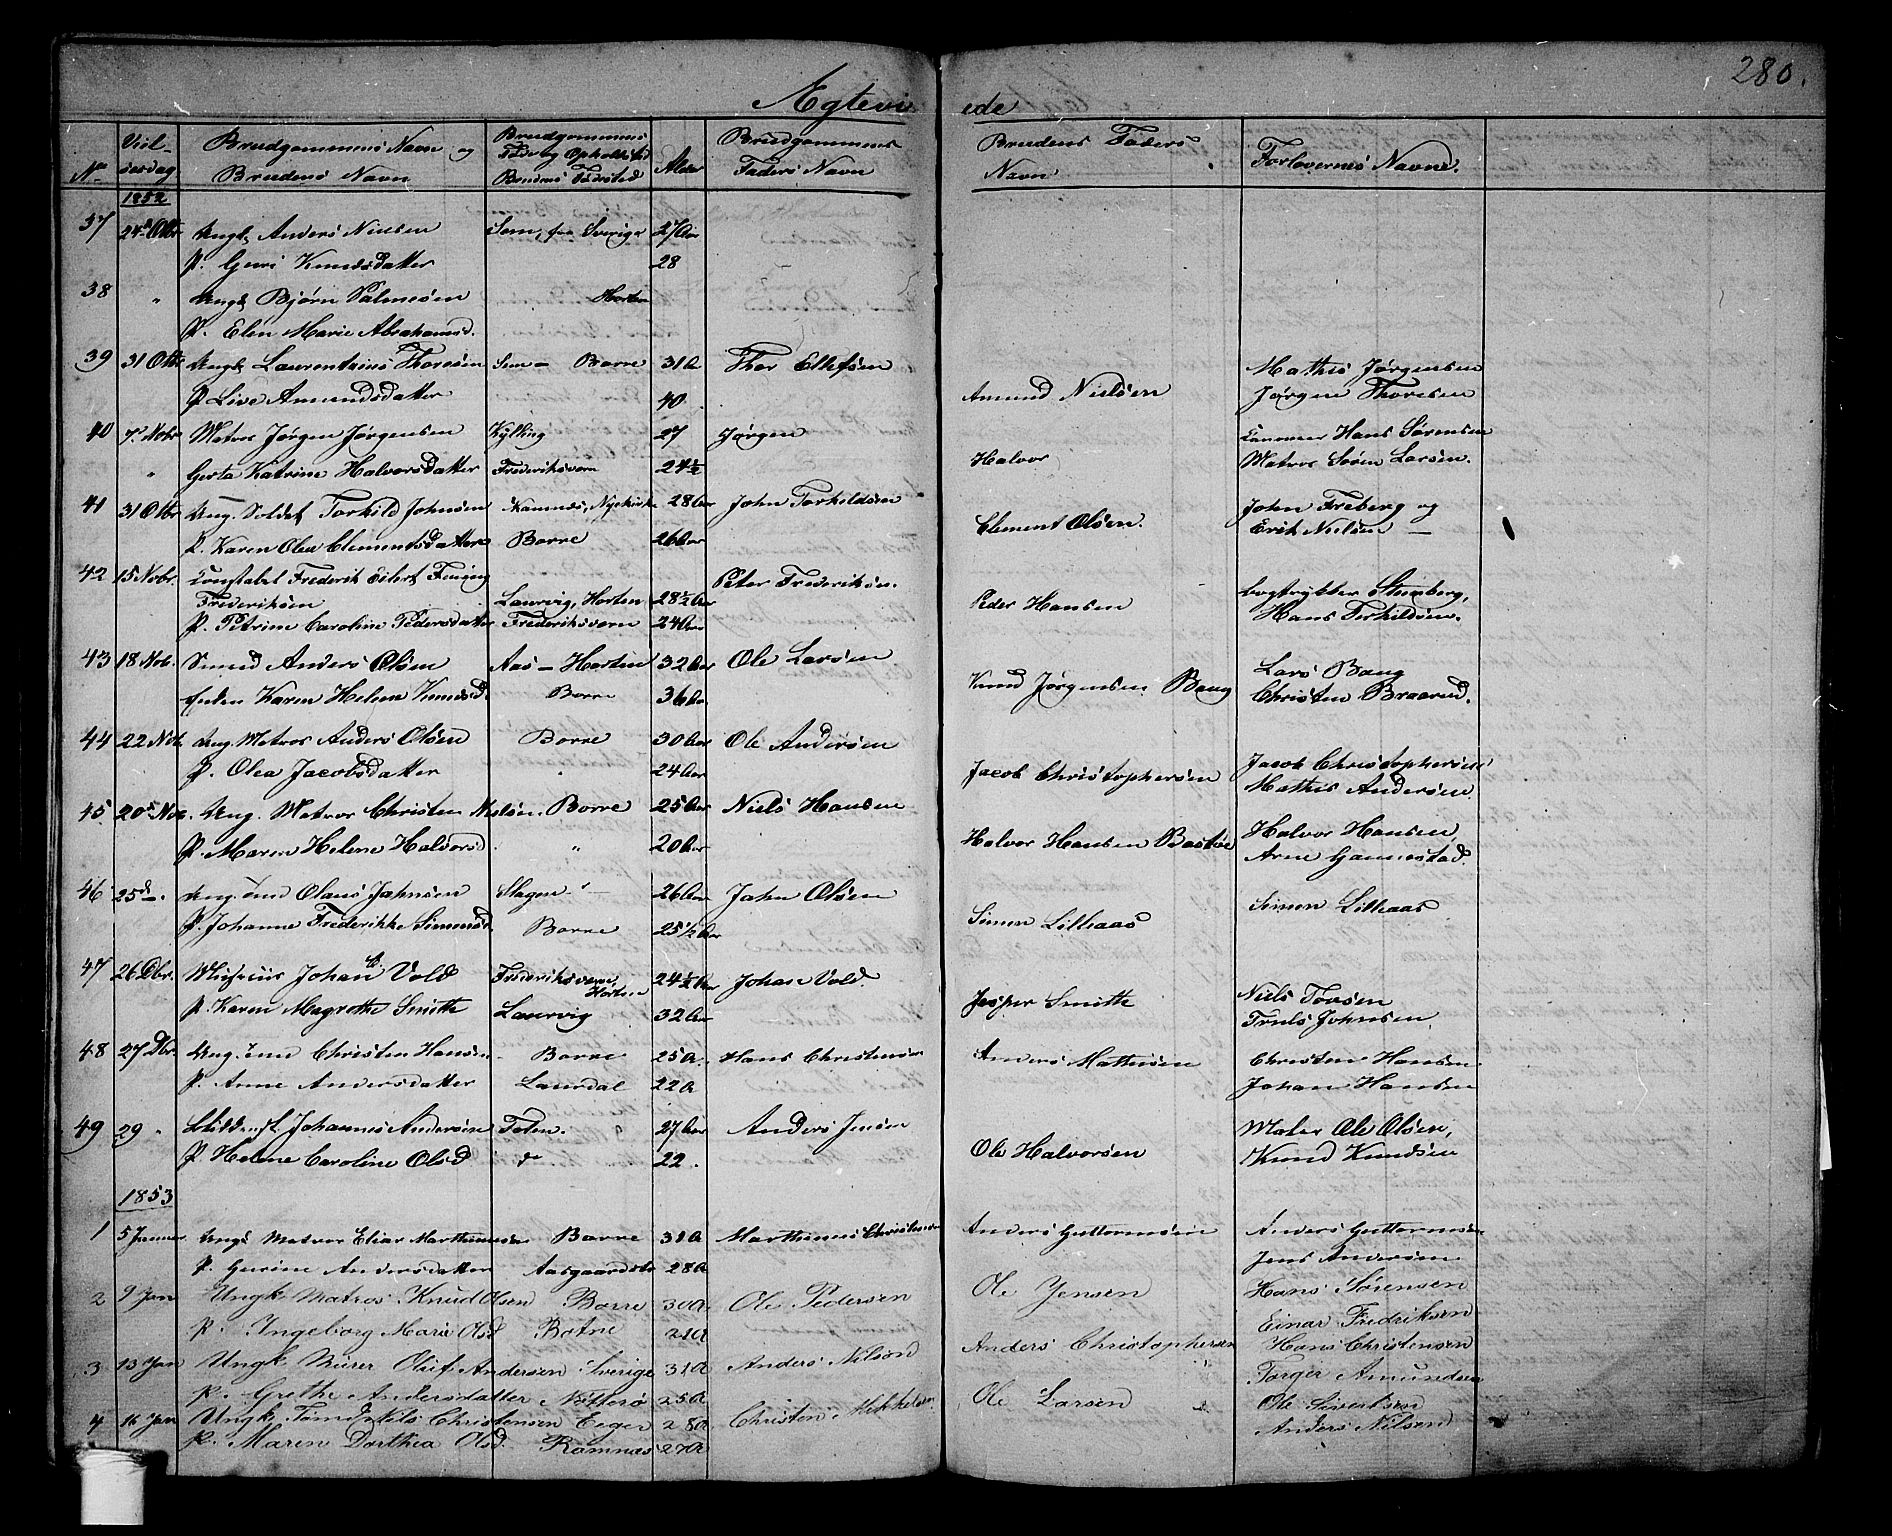 280.
Ægteviede
No
Viel-
sesdag
Brudgommens Navn og
Brudens Navn
Brudgommens
Fødeby Opholdsted
Brudens Fødested
Alder
Brudgommens
Faders Navn
Brudens Faders
Navn
Forlovernes Navne.
1852
37 24d Otbr Ungk Anders Nielsen Sem, fra Sverige 27 Aar
P. Guri Knudsdatter 28
38 " Ungk Bjørn Salmesøn Horten
P. Elen Marie Abrahamsd.
39 31 Otbr Ungk Laurentsius Thoresøn Sem - Borre 31 A Thor Ellefsøn Mathis Jørgensen
P. Live Amundsdatter 40. Amund Nielsen Jørgen Thoresen
40 7 Nobr Matros Jørgen Jørgensen Kylling 27 Jørgen Canoneer Hans Sørensen
" Gerta Katrine Halvorsdatter Frederiksvern 24½ Halvor Matros Søren Larsen.
41 31 Otbr Ung. Soldat Torkild Johnsøn Ramnæs, Nykirke 28 Aar John Torkildsøn John Freberg og
P. Karen Olea Clementsdatter Borre 26 Aar Clement Olsen. Erik Nielsen —
42 15 Nobr. Constabel Frederik Eilert Peter Frederiksøn.
Frederiksøn Laurvig, Horten 28½ Aar bogtrykker
P. Petrine Caroline Pedersdatter Frederiksvern 24 Aar Peder Hansen Hans Terkildsen.
43 18 Nob. Smed Anders Olsen Aas - Horten 32 Aar Ole Larsen Lars Bang
Enken Karen Helene Knudsd Borre 36 Aar Knud Jørgensen Bang Christen Braarud.
44 22 Nob. Ung. Matros Anders Olsen Borre 30 Aar Ole Andersen Jacob Christophersen
P. Olea Jacobsdatter " 24 Aar Jacob Christophersen Mathis Andersen.
45 20d Nob. Ung. Matros Christen Nielsen. Borre 25 Aar Niels Hansen Halvor Hansen
P. Maren Helene Halvorsd. " 20 Aar Halvor Hansen Bastøe Arne Gannestad.
46 25 d. Ung. Olaus Jahnsen Slagen 26 Aar John Olsen Simen Lilleaas
P. Johanne Frederikke Simensd. Borre 25½ Aar Simen Lilleaas
47 26 Dbr. Johan Vold Frederiksvern, Horten 24½ Aar Johan Vold. Niels Torsen
P. Karen Magrethe Smitte Laurvig 32 Aar Jesper Smitte Truls Johnsen
48 27 Dbr. Ung. Christen Hansen Borre 25 A. Hans Christensen Christen Hansen
P. Anne Andersdatter Laurdal 22 A Anders Mathisen Johan Hansen
49 29 " Johannes Andersøn Toten. 27 Aar Anders Jensen Maler Ole Olsen,
P. Helene Caroline Olsd do 22. Ole Halvorsen Knud Knudsen
1853
1 5 Januar Ungk Matros Elias Marthinussen Borre 31 A Marthinus Christensen Anders Guttormsen Anders Guttormsen
P. Gurine Andersdatter Aasgaardstr 28 A Jens Andersen
2 9 Jan Ungk Matros Knud Olsen Borre 30 A Ole Pedersen Ole Jensen Hans Sørensen
P. Ingeborg Marie Olsd Botne 21 A Einar Fredriksen
3 13 Jan Ungk Murer Oluf Andersen Sverige 31 A Anders Nilson Anders Christophersen Hans Christensen
P. Grethe Andersdatter Nøtterø 25 A Torger Amundsen
4 16 Jan Ungk Tømm. Nils Christensen Eeger 28 A Christen Mikkelsen Ole Larsen Ole Sivertsen
P. Maren Dorthea Olsd. Ramnæs 27 A Anders Nilsen